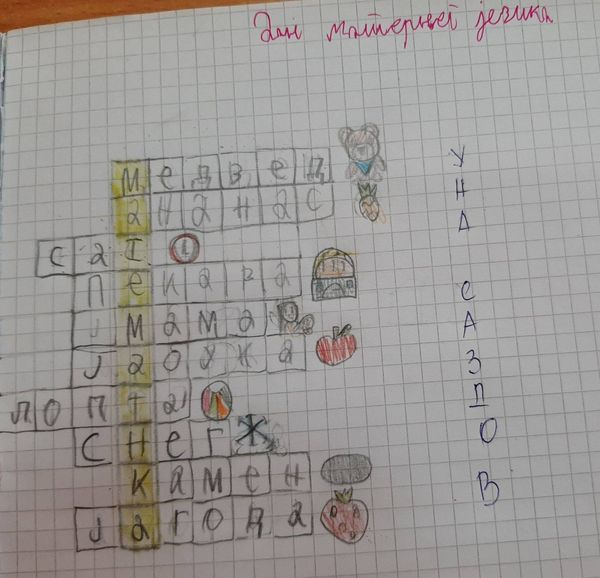 Дан матерњег језика
медвед
ананас
сат
пекара
мама
јабука
лопта
снег
камен
јагода
У
Н
А
С
А
З
О
В